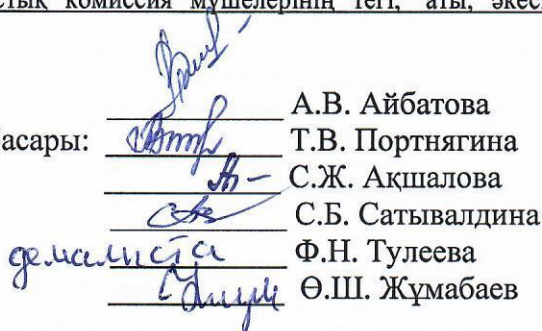 стық комиссия мүшелерінің тегі, аты, әкес
А.В. Айбатова
асары: Т.В. Портнягина
С.Ж. Ақшалова
С.Б. Сатывалдина
демалыста Ф.Н. Тулеева
Ө.Ш. Жұмабаев